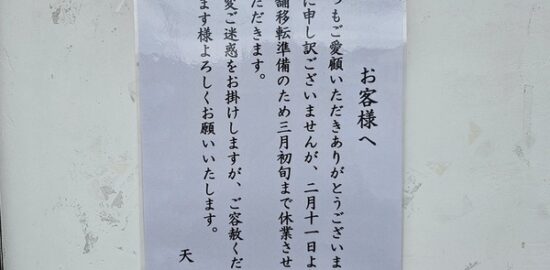 お客様へ
つもご愛顧いただきありがとうございま
に申し訳ございませんが、二月十一日よ
舗移転準備のため三月初旬まで休業させ
ただきます。
変ご迷惑をお掛けしますが、ご容赦くだ
ます様よろしくお願いいたします。
天